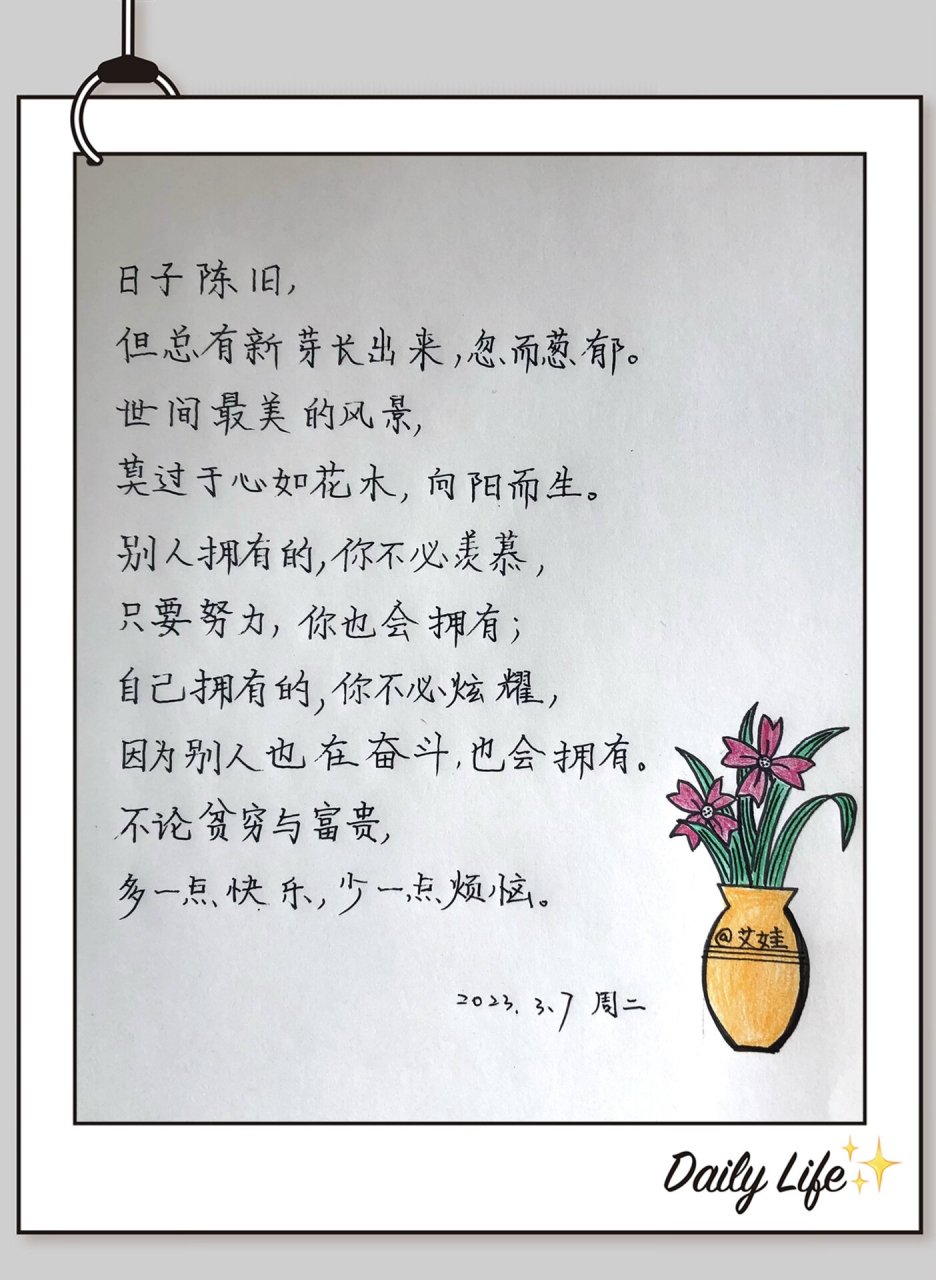 日子陈旧,
但总有新芽长出来,忽而葱郁。
世间最美的风景,
莫过于心如花木,向阳而生。
别人拥有的,你不必羡慕,
只要努力,你也会拥有;
自己拥有的,你不必炫耀,
因为别人也在奋斗,也会拥有。
不论贫穷与富贵,
多一点快乐,少一点烦恼。
@艾娃
2023.3.7 周二
Daily Life